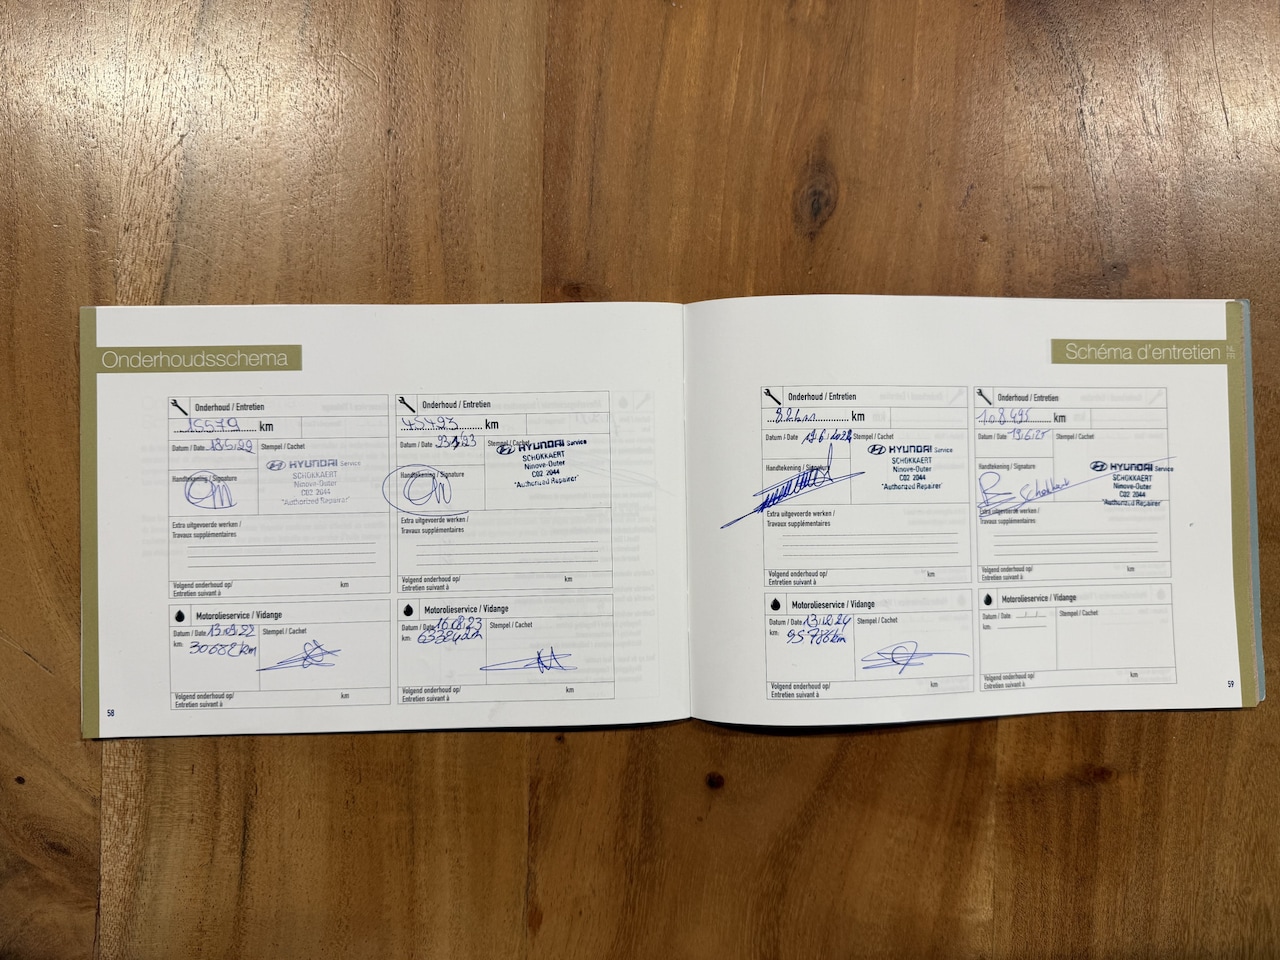 Onderhoudsschema
Onderhoud / Entretien
15579 km
Datum / Date
Stempel / Cachet
Handtekening / Signature
HYUNDAI Service
SCHOKKAERT
Ninove-Outer
C02 2044
"Authorized Repairer"
Extra uitgevoerde werken /
Travaux supplémentaires
Volgend onderhoud op/
Entretien suivant à
km
Motorolieservice / Vidange
Datum / Date 13.09.22
Stempel / Cachet
km: 30682 km
Volgend onderhoud op/
Entretien suivant à
km
Onderhoud / Entretien
45493 km
Datum / Date
Stempel / Cachet
Handtekening / Signature
HYUNDAI Service
SCHOKKAERT
Ninove-Outer
C02 2044
"Authorized Repairer"
Extra uitgevoerde werken /
Travaux supplémentaires
Volgend onderhoud op/
Entretien suivant à
km
Motorolieservice / Vidange
Datum / Date 16.08.23
Stempel / Cachet
km:
Volgend onderhoud op/
Entretien suivant à
km
58
Schéma d'entretien
NL
FR
Onderhoud / Entretien
km
Datum / Date 19.6.2024
Stempel / Cachet
Handtekening / Signature
HYUNDAI Service
SCHOKKAERT
Ninove-Outer
C02 2044
"Authorized Repairer"
Extra uitgevoerde werken /
Travaux supplémentaires
Volgend onderhoud op/
Entretien suivant à
km
Motorolieservice / Vidange
Datum / Date
Stempel / Cachet
km: 95786km
Volgend onderhoud op/
Entretien suivant à
km
Onderhoud / Entretien
108495 km
Datum / Date 13/6/25
Stempel / Cachet
Handtekening / Signature
Schokkaert
HYUNDAI Service
SCHOKKAERT
Ninove-Outer
C02 2044
"Authorized Repairer"
Extra uitgevoerde werken /
Travaux supplémentaires
Volgend onderhoud op/
Entretien suivant à
km
Motorolieservice / Vidange
Datum / Date
Stempel / Cachet
km:
Volgend onderhoud op/
Entretien suivant à
km
59